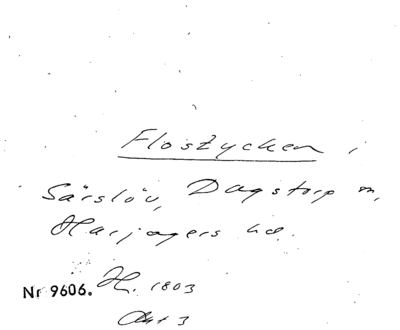 Flostycken i
Särslöv, Dagstorp m,
Harjagers hd.
Nr 9606. H. 1803
Akt 3